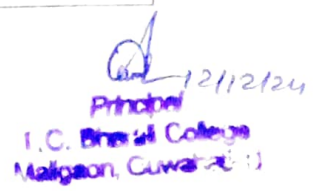 12/12/24
Principal
I. C. Bharali College
Maligaon, Guwahati